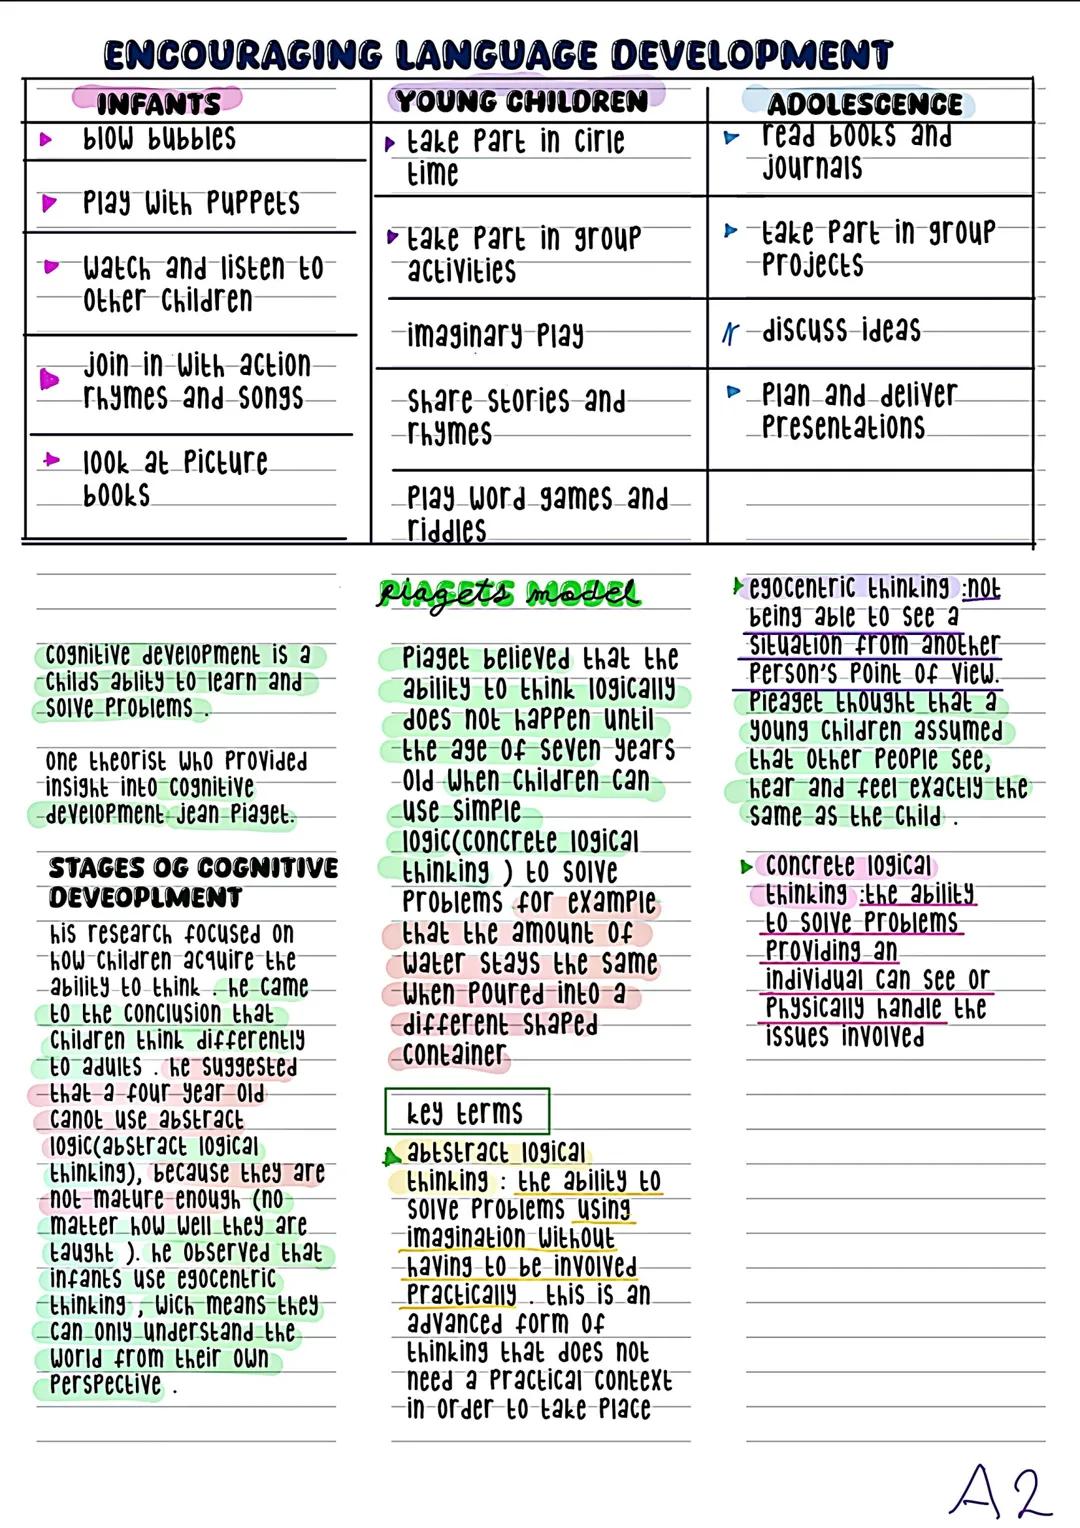 ENCOURAGING LANGUAGE DEVELOPMENT
INFANTS
blow bubbles
Play With Puppets
Watch and listen to
other Children
join in With action
rhymes and songs
look at Picture
books
YOUNG CHILDREN
take Part in Cirle
time
take Part in group
activities
imaginary Play
Share Stories and
rhymes
Play Word games and
riddles
ADOLESCENCE
read books and
journals
take Part in group
Projects
discuss ideas
Plan and deliver
Presentations
Cognitive development is a
Childs ablity to learn and
Solve Problems .
one theorist Who Provided
insight into Cognitive
development jean Piaget.
STAGES OG COGNITIVE
DEVEOPLMENT
his research focused on
how Children acquire the
ability to think . he Came
to the Conclusion that
Children think differently
to adults . he suggested
that a four year old
Canot use abstract
logic(abstract logical
thinking), because they are
not mature enough (no
matter how Well they are
taught ). he observed that
infants use egocentric
thinking , Wich means they
Can only understand the
World from their own
Perspective .
PIAGETS MODEL
Piaget believed that the
ability to think logically
does not happen until
the age of Seven Years
old When Children Can
use Simple
logic(Concrete logical
thinking ) to Solve
Problems for example
that the amount of
Water Stays the Same
When Poured into a
different Shaped
Container
key terms
abtstract logical
thinking : the ability to
Solve Problems using
imagination Without
having to be involved
Practically . this is an
advanced form of
thinking that does not
need a Practical Context
in order to take Place
egocentric thinking :not
being able to See a
Situation from another
Person's Point of View.
Pieaget thought that a
young Children assumed
that Other People See,
hear and feel exactly the
Same as the Child .
Concrete logical
thinking :the ability
to Solve Problems
Providing an
individual Can See or
Physically handle the
issues involved
A2